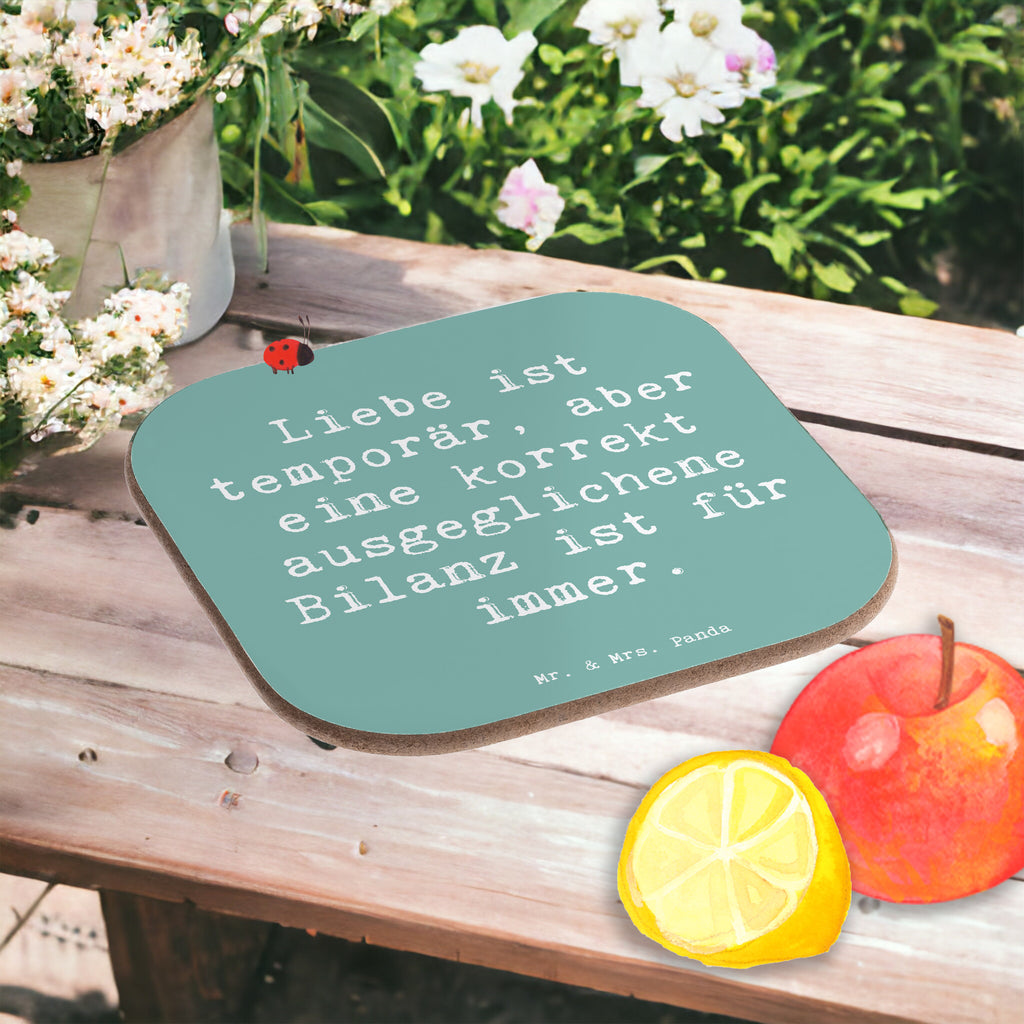 Liebe ist
temporär, aber
eine korrekt
ausgeglichene
Bilanz ist für
immer.
Mr. & Mrs. Panda